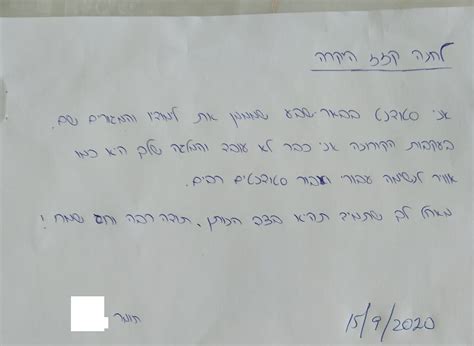 לחנה קזז היקרה
אני סטודנט בבאר שבע שמממן את לימודיו והמגורים שם.
בעקבות הקורונה אני כבר לא עובד והמלגה שלך היא כמו
אוויר לנשימה עבורי ועבור סטודנטים רבים.
מאחל לך שתמיד תהיא בצד הנותן. תודה רבה וחג שמח!
תומר
15/9/2020